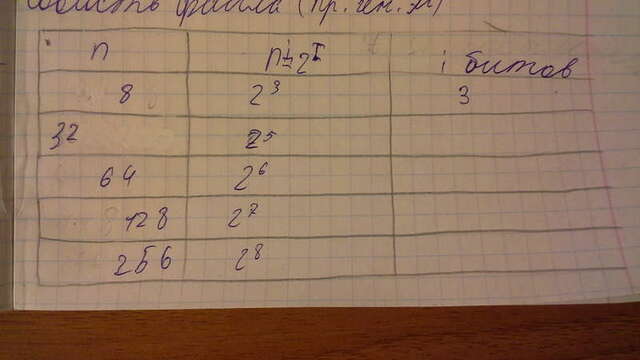 область файла (пр. ген. эл)
n n=2^I i битов
8 2^3 3
32 2^5
64 2^6
128 2^7
256 2^8